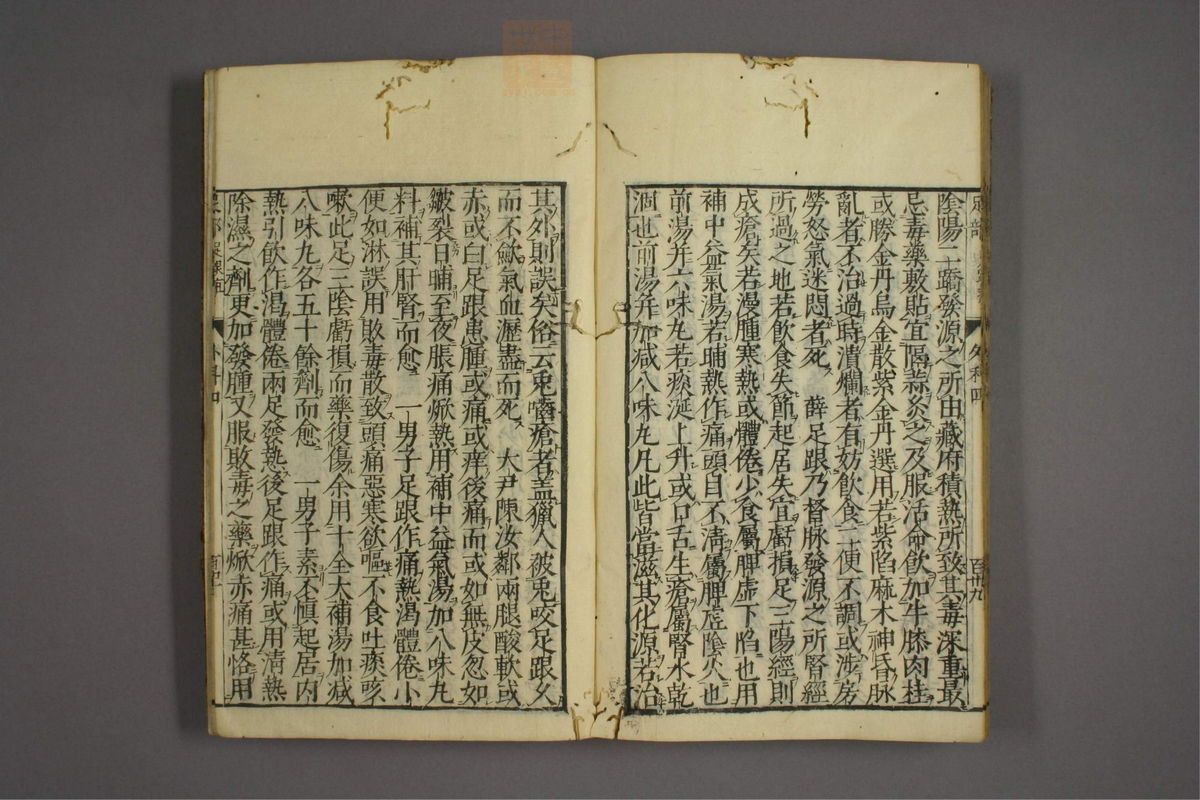 陰陽二蹻發源之所由藏府積熱所致其毒深重最
忌毒藥敷貼宜隔蒜灸之及服活命飲加牛膝肉桂
或勝金丹烏金散紫金丹選用若紫陷麻木神昏脉
亂者不治過時潰爛者有妨飲食二便不調或涉房
勞怒氣迷悶者死　薛足跟乃督脉發源之所腎經
所過之地若飲食失節起居失宜虧損足三陽經則
成瘡矣若漫腫寒熱或體倦少食屬脾虚下陷也用
補中益氣湯若晡熱作痛頭目不清屬脾虚陰火也
前湯并六味丸若痰涎上升或口舌生瘡屬腎水乾
涸也前湯并加减八味丸凡此皆當滋其化源若治
外科四
百四十九
其外則誤矣俗云兎嚙瘡者盖獵人被兎咬足跟久
而不歛氣血瀝盡而死　大尹陳汝鄰兩腿酸軟或
赤或白足跟患腫或痛或痒後痛而或如無皮忽如
皺裂日晡至夜脹痛焮熱用補中益氣湯加八味丸
料補其肝腎而愈　一男子足跟作痛熱渴體倦小
便如淋誤用敗毒散致頭痛惡寒欲嘔不食吐痰咳
嗽此足三陰虧損而藥復傷余用十全大補湯加减
八味丸各五十餘劑而愈　一男子素不慎起居内
熱引飲作渴體倦兩足發熱後足跟作痛或用清熱
除濕之劑更加發腫又服敗毒之藥焮赤痛甚恪用
外科四